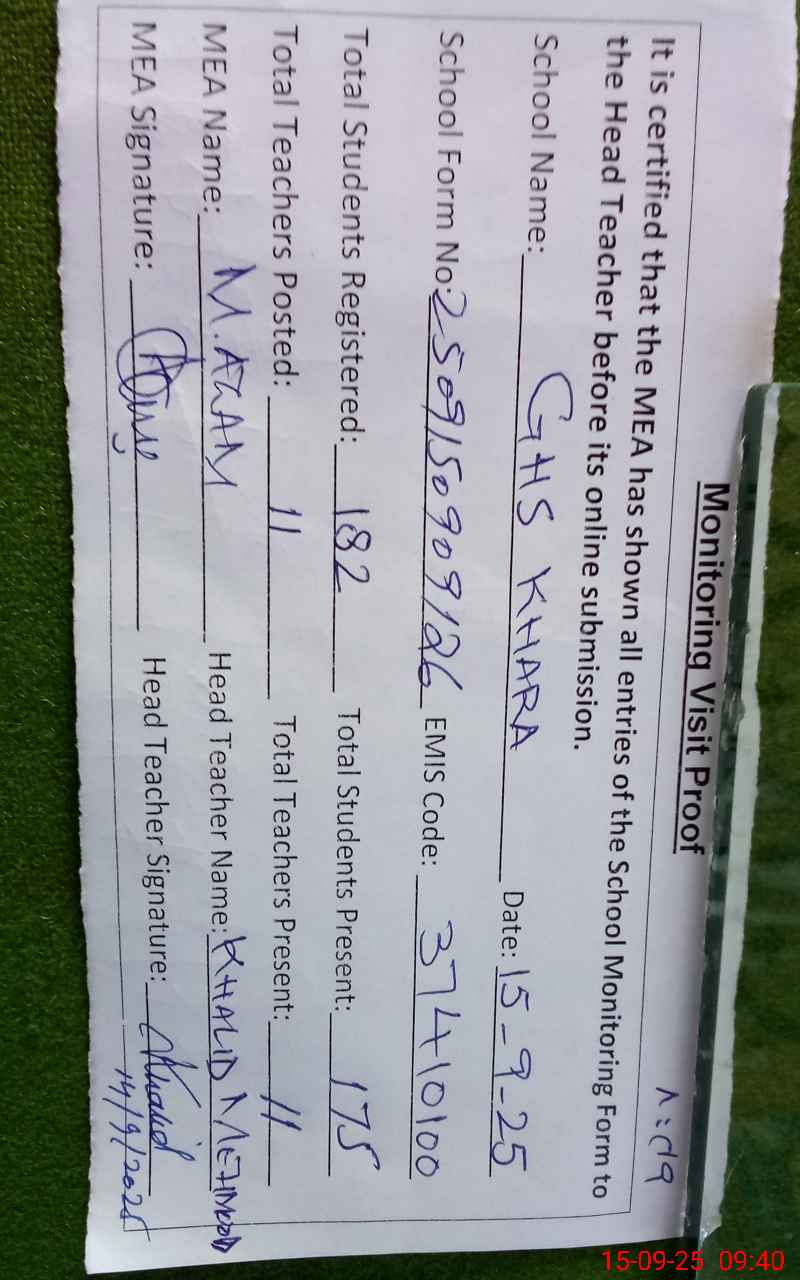 Monitoring Visit Proof
It is certified that the MEA has shown all entries of the School Monitoring Form to
the Head Teacher before its online submission.
School Name: GHS KHARA Date: 15-9-25
School Form No: 2509150909126 EMIS Code: 37410100
Total Students Registered: 182 Total Students Present: 175
Total Teachers Posted: 11 Total Teachers Present: 11
MEA Name: M.AZAM Head Teacher Name: KHALID MEHMOOD
MEA Signature: Head Teacher Signature: Khalid
15-09-25 09:40